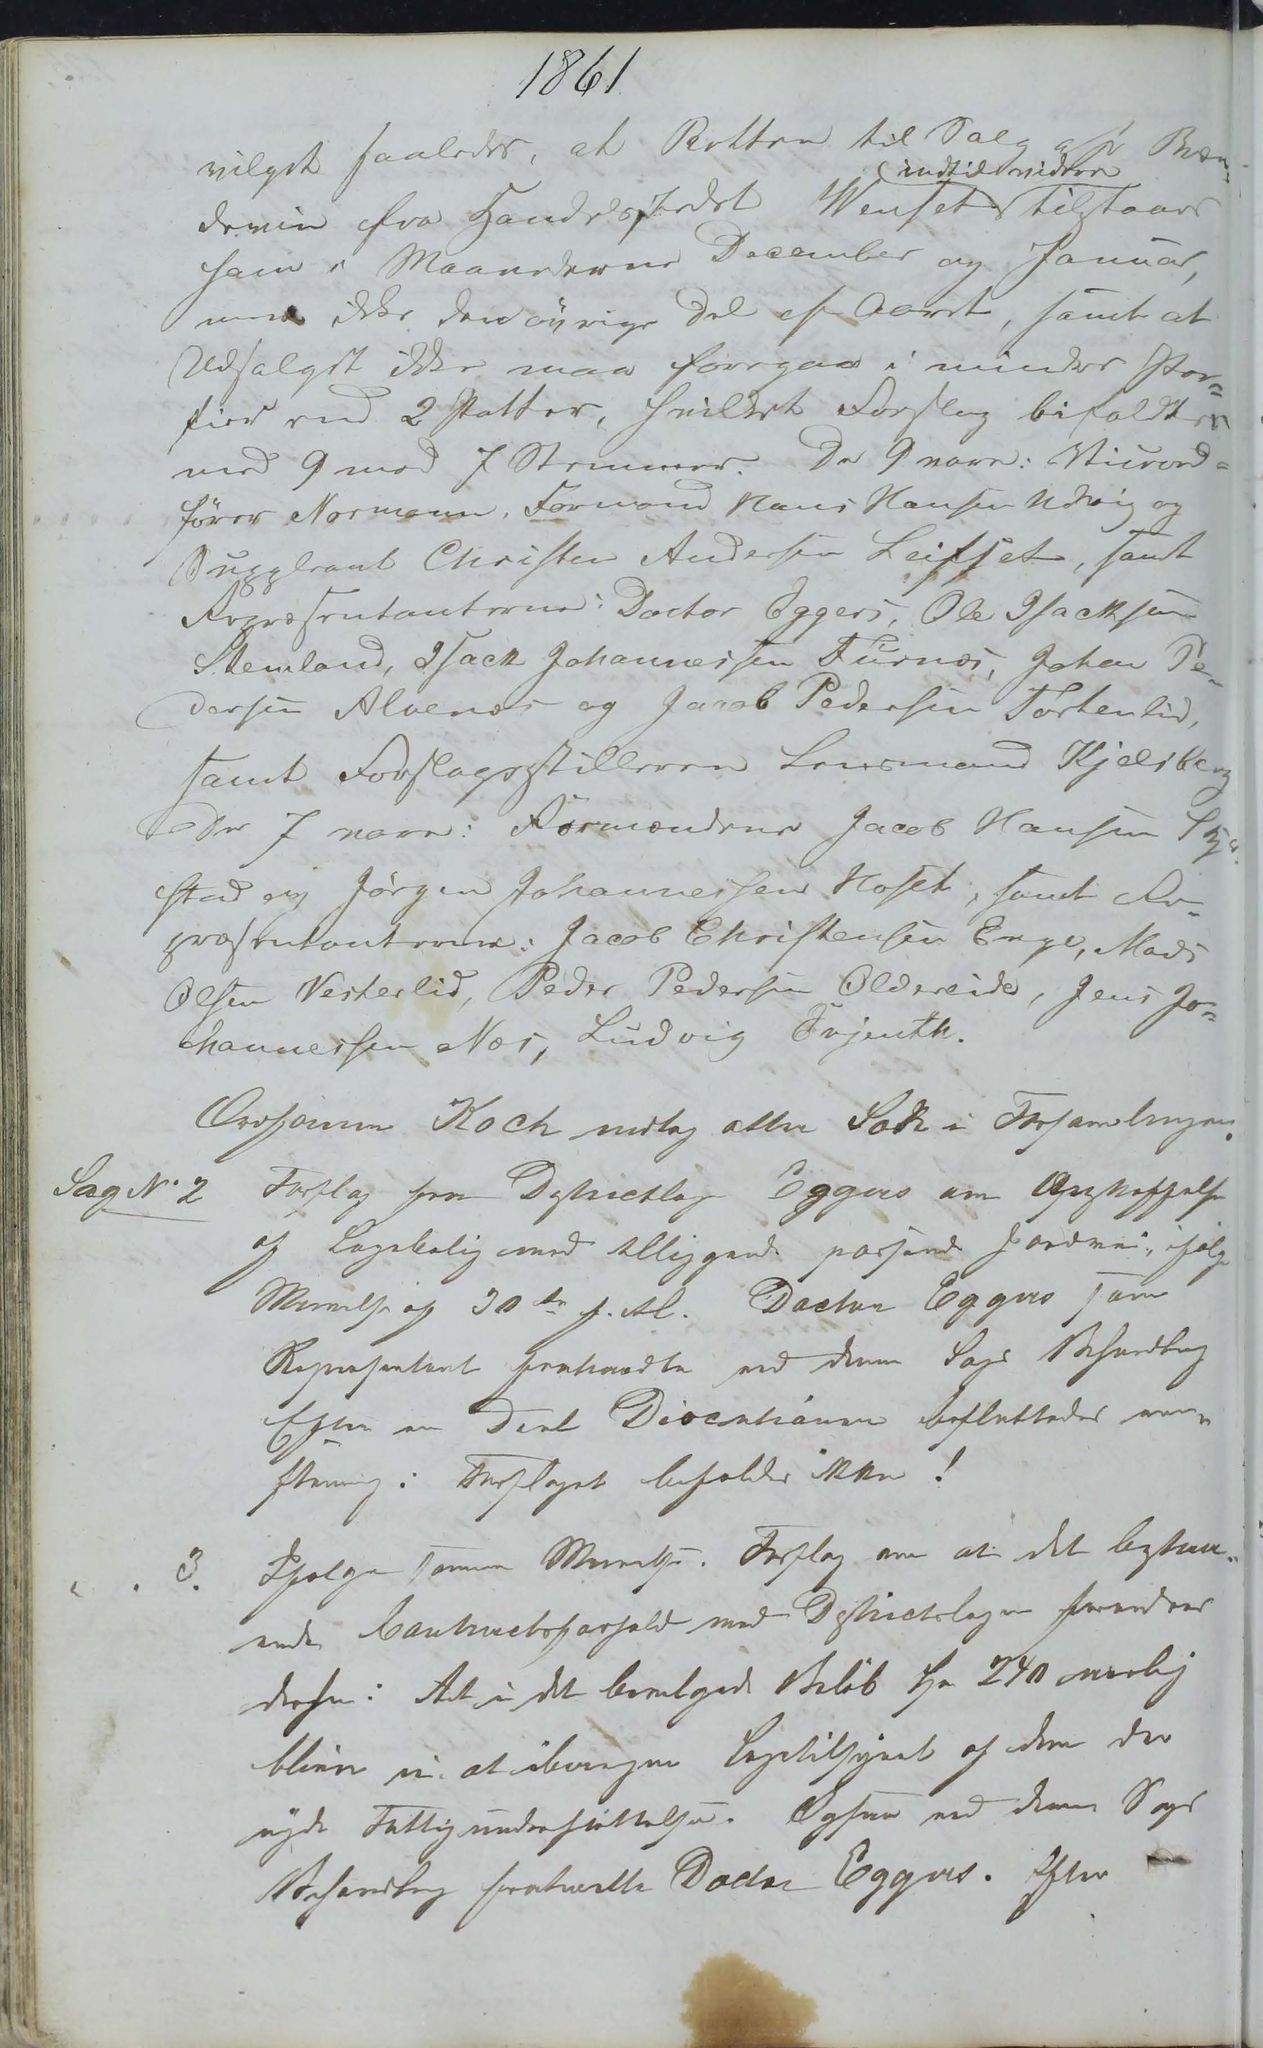 1861
vilget saaledes, at Retten til Salg af Bræn-
deviin fra Handelsstedet Wenset indtil videre tilstaaes
ham i Maanederne December og Januar,
men ikke den øvrige Del af Aaret, samt at
Udsalget ikke maa foregaa i mindre Por-
tier end 2 Potter, hvilket Forslag bifaldtes
med 9 mod 7 Stemmer. De 9 vare: Viceord-
fører Normann, Formand Hans Hansen Udvig og
Suppleant Christen Andersen Leifset, samt
Repræsentanterne: Doctor Eggers, Ole Isacksen
Stemland, Isack Johannessen Furnes, Johan Pe-
dersen Alvenes og Jacob Pedersen Tortenlid,
samt Forslagsstilleren Lensmand Kjelsberg
De 7 vare: Formændene Jacob Hansen
stad og Jørgen Johannessen Hoset, samt Re-
præsentanterne: Jacob Christensen Enge, Mads
Olsen Vesterlid, Peder Pedersen Oldereide, Jens Jo-
hannessen Nes, Ludvig Evjenth.
Ordføreren Koch indtog atter Sæde i Forsamlingen.
Sag No 2 Forslag fra Districtslæge Eggers om Anskaffelse
af Lægebolig med tilliggende passende Jordvei, ifølge
Skrivelse af 30te f. M. Doctor Eggers som
Repræsentant fratraadte ved denne Sags Behandling
Efter en Deel Discutioner besluttedes een-
stemmig: Forslaget bifaldes ikke!
" " 3. Ifølge samme Skrivelse. Forslag om at det bestaa-
ende Contractsforhold med Districtslægen forandres
derhen: At i det bevilgede Beløb Spd 240 aarlig
bliver at iberegne Lægetilsynet af dem der
nyde Fattigunderstøttelse. Ogsaa ved denne Sags
Behandling fratraadte Doctor Eggers. Efter